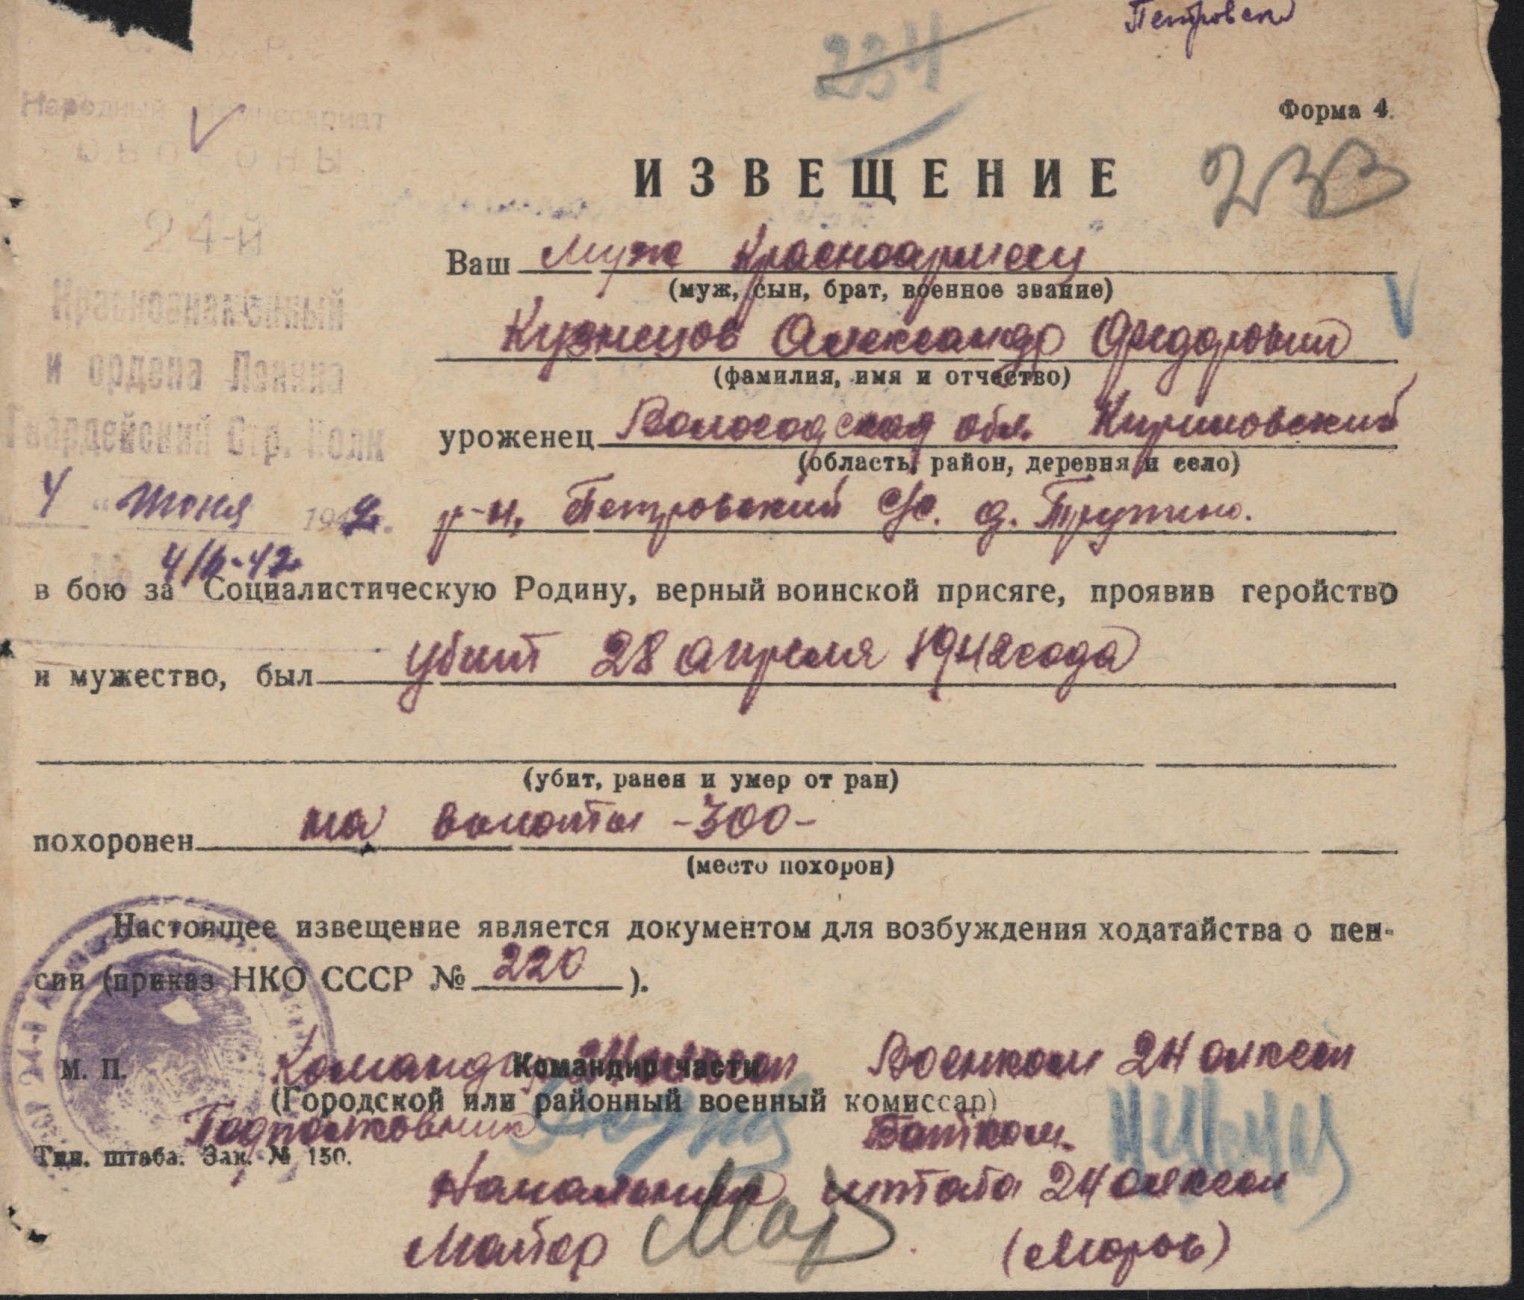 Петровск
234
Форма 4.
Народный Комиссариат
ОБОРОНЫ
24-й
Краснознаменный
и ордена Ленина
Гвардейский Стр. Полк
4 " Июня 1942.
4/6-42
ИЗВЕЩЕНИЕ
233
Ваш муж Красноармеец
(муж, сын, брат, военное звание)
Кузнецов Александр Федорович
(фамилия, имя и отчество)
уроженец Вологодская обл. Кириловский
(область, район, деревня и село)
р-н, Петровский с/с. д.
в бою за Социалистическую Родину, верный воинской присяге, проявив геройство
и мужество, был убит 28 апреля 1942 года
(убит, ранен и умер от ран)
похоронен на высоты -300-
(место похорон)
Настоящее извещение является документом для возбуждения ходатайства о пен-
сии (приказ НКО СССР № 220 ).
М. П. Командир 24 Командир части Военком 24
(Городской или районный военный комиссар)
Подполковник Батком.
Тип. штаба. Зак. № 150.
Начальник штаба 24
Майор (Моров)